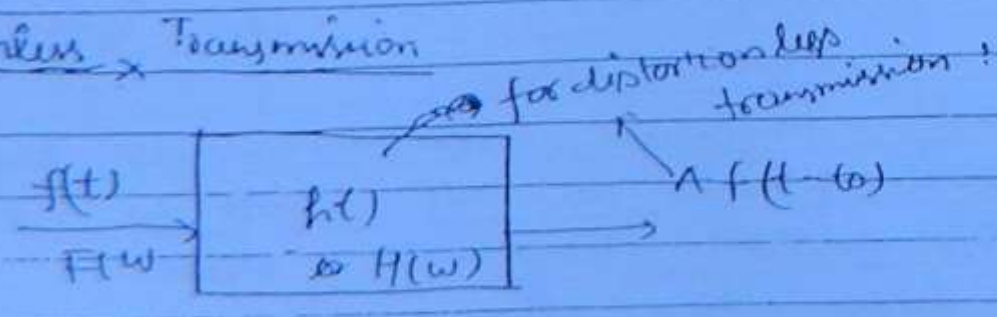 Transmission
for distortion less
transmission :
f(t)
h(t)
A f(t-t0)
F(w
H(w)